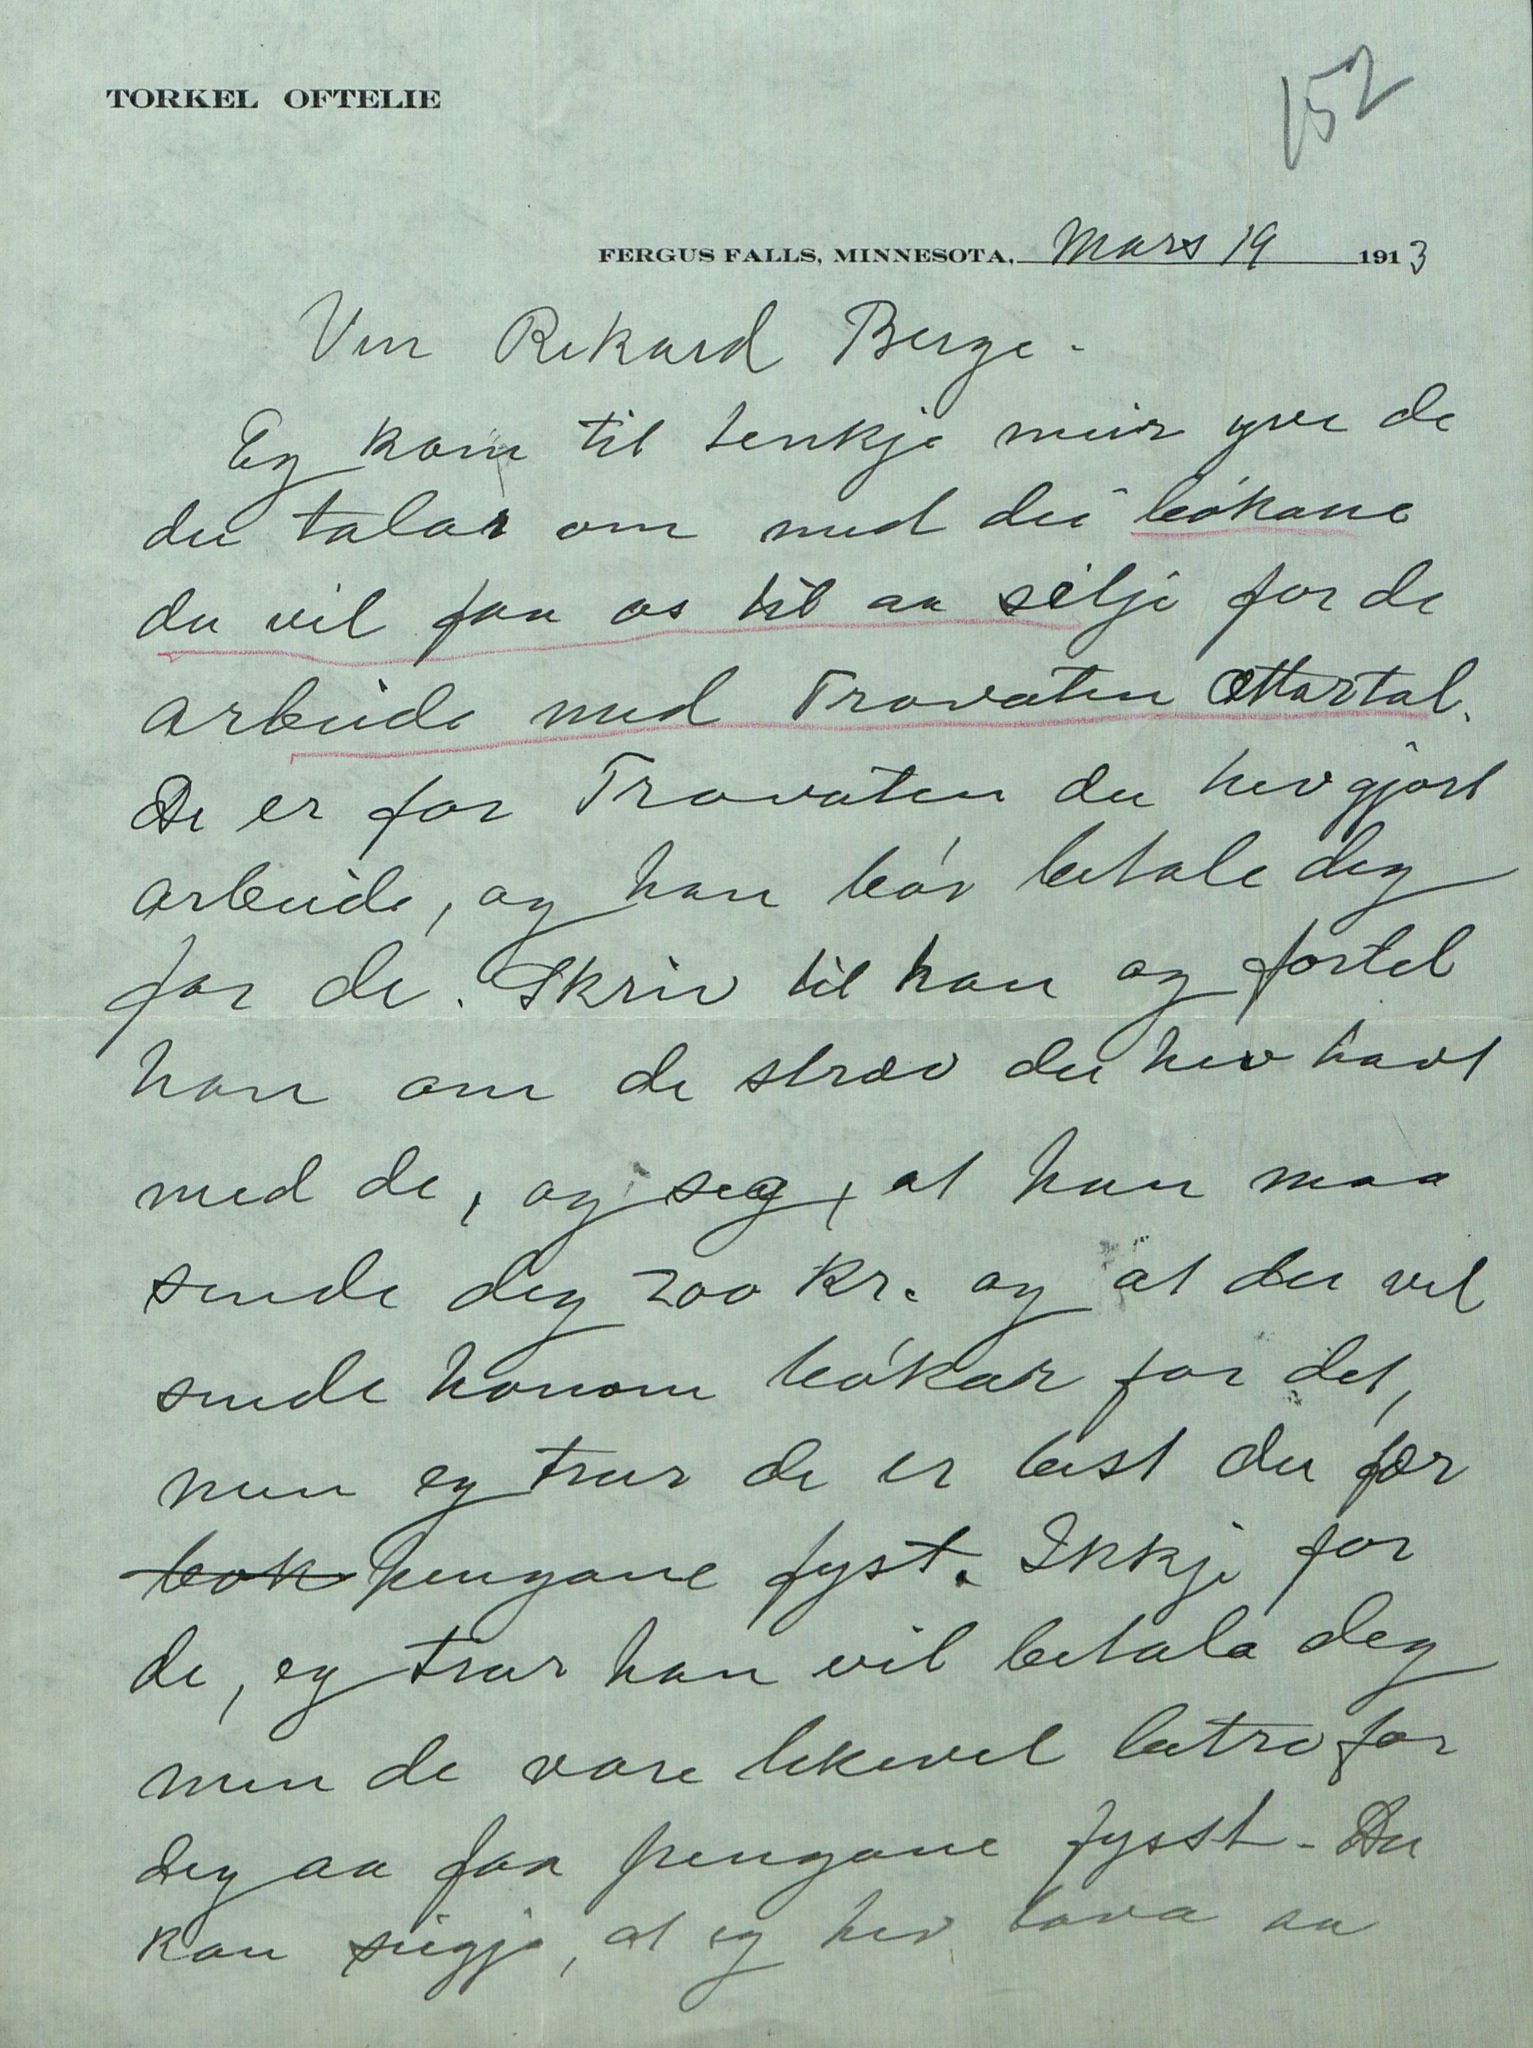 TORKEL OFTELIE
152
FERGUS FALLS, MINNESOTA, Mars 19 1913
Ven Rikard Berge -
Eg kom til tenkje meir yve de
du talar om med dei bókane
du vil faa os til aa selje for de
arbeide med Trovaten Ættartal.
De er for Trovaten du hev gjort
arbeide, og han bór betale deg
for de. Skriv til han og fortel
han om de stræv du hev havt
med de, og seg, at han maa
sende deg 200 Kr. og at du vil
sende honom bókar for det,
men eg trur de er best du fær
bok pengane fyst. Ikkje for
de, eg trur han vil betala deg
men de vore likevel betre for
deg aa faa pengane fysst - Du
kan seigje, at eg hev lova aa